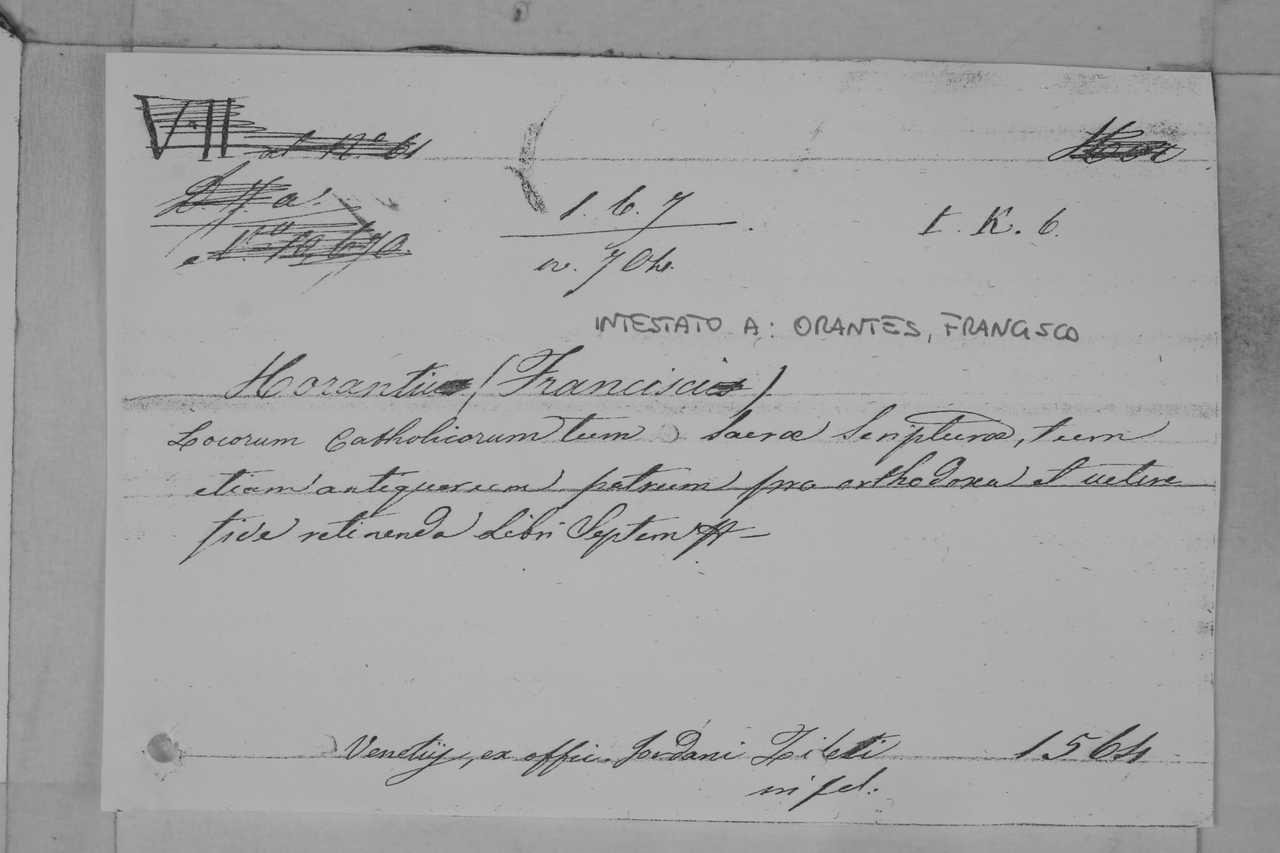 VII
Hor
1. 6. 7
I. K. 6.
INTESTATO A: ORANTES, FRANCISCO
Horantii (Francisci)
Locorum Catholicorum tum Sacræ Scripturæ, tum
etiam antiquorum patrum pro orthodoxa et vetere
fide retinenda Libri Septem
Venetijs, ex offic. Jordani Zileti 1564
in fol.